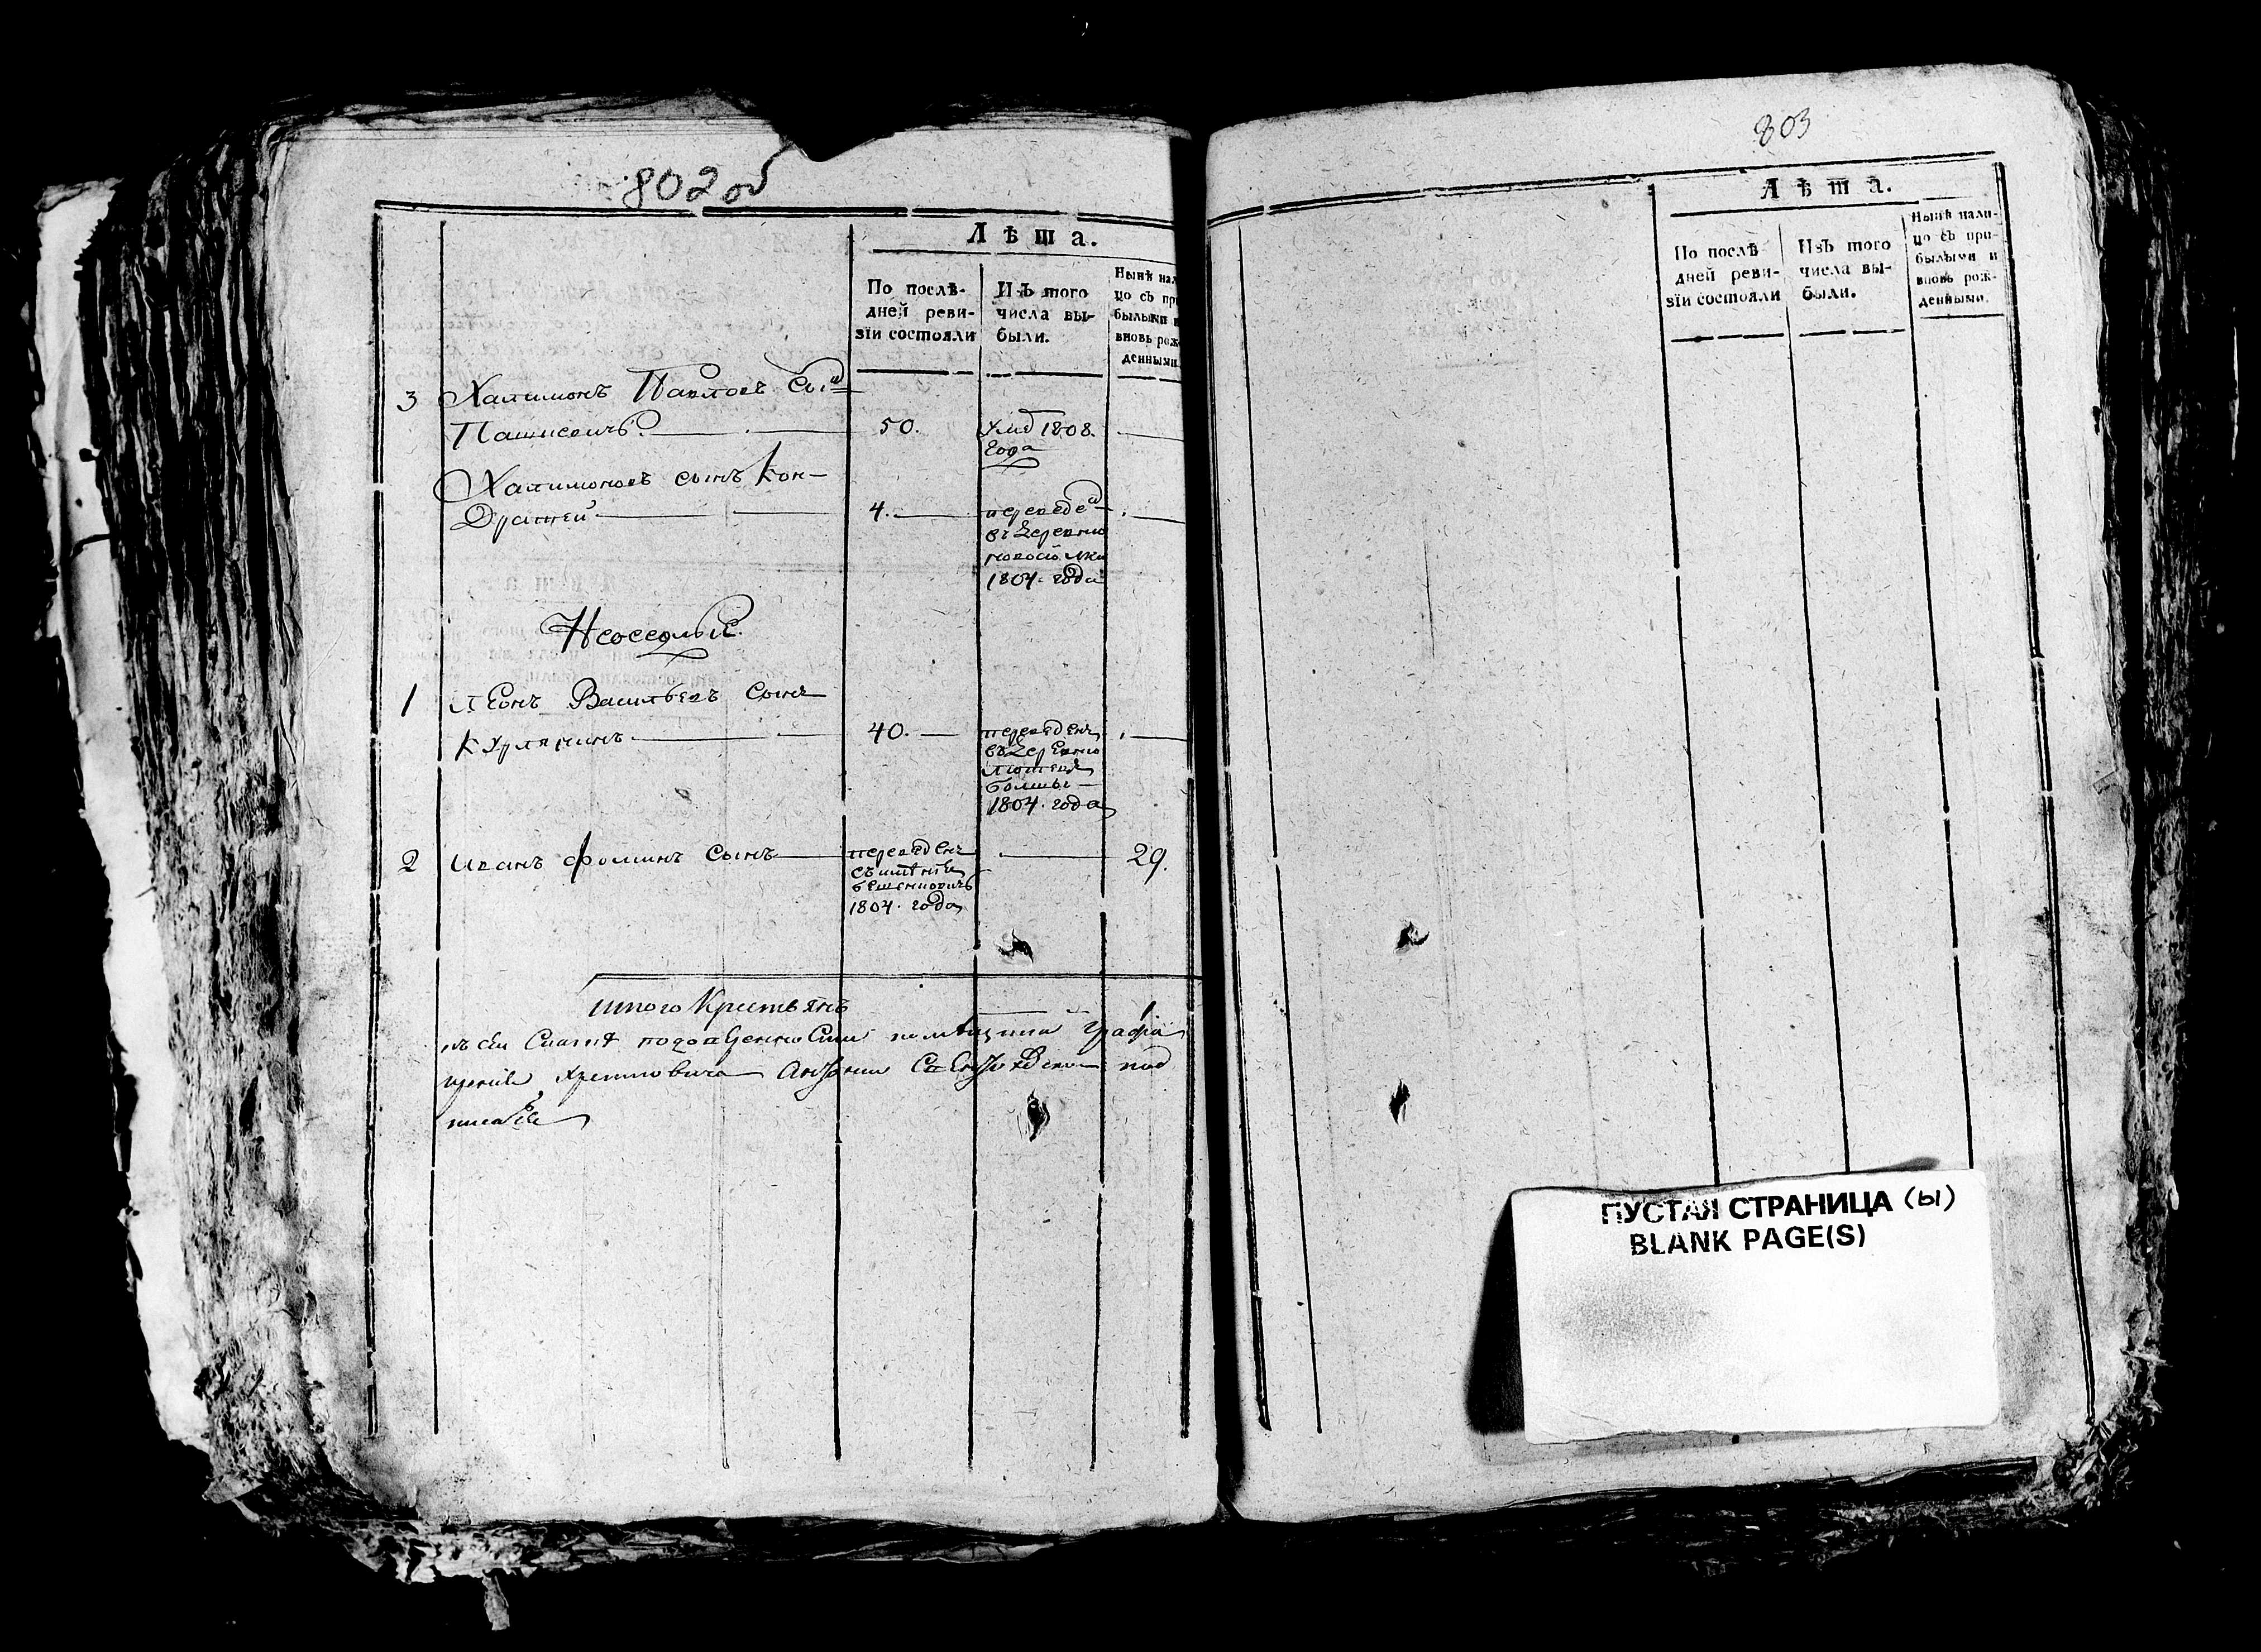 802 об
Лѣта.
По послѣ-
дней реви-
зіи состояли
Изъ того
числа вы-
были.
Нынѣ нали
цо съ при
былыми и
вновь рож
денными.
3 Халимонъ Павловъ Сынъ
50. Умре 1808.
года
Халимоновъ сынъ Кон-
Дратей 4. переведен
въ Деревню
1804. года
Неоседлые.
1 Леонъ Васильевъ Сынъ
Курлянинъ 40. переведенъ
въ Деревню
1804. года
2 Иванъ Фоминъ Сынъ переведенъ 29.
съ имѣния
бешенковичъ
1804. года
итого Крестьянъ 1
помещика Графа
Хрептовича под
писался
803
Лѣта.
По послѣ
дней реви-
зіи состояли
Изъ того
числа вы-
были.
Нынѣ нали-
цо съ при-
былыми и
вновь рож-
денными.
ПУСТАЯ СТРАНИЦА (Ы)
BLANK PAGE(S)